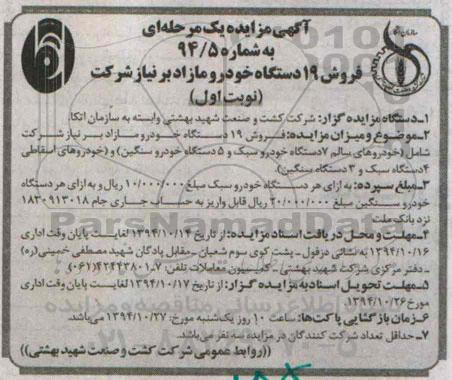 آگهی مزایده یک مرحله‌ای
به شماره ۹۴/۵
فروش ۱۹ دستگاه خودرو مازاد بر نیاز شرکت
(نوبت اول)
۱ـ دستگاه مزایده گزار: شرکت کشت و صنعت شهید بهشتی وابسته به سازمان اتکا.
۲ـ موضوع و میزان مزایده: فروش ۱۹ دستگاه خودرو مازاد بر نیاز شرکت
شامل (خودروهای سالم ۷ دستگاه خودرو سبک و ۵ دستگاه خودرو سنگین) و (خودروهای اسقاطی
۴ دستگاه سبک و ۳ دستگاه سنگین).
۳ـ مبلغ سپرده: به ازای هر دستگاه خودرو سبک مبلغ ۱۰/۰۰۰/۰۰۰ ریال و به ازای هر دستگاه
خودرو سنگین مبلغ ۲۰/۰۰۰/۰۰۰ ریال قابل واریز به حساب جاری جام ۱۸۳۰۹۱۳۰۱۸
نزد بانک ملت
۴ـ مهلت و محل دریافت اسناد مزایده: از تاریخ ۱۳۹۴/۱۰/۱۴ لغایت پایان وقت اداری
۱۳۹۴/۱۰/۱۶ به نشانی دزفول ـ پشت کوی سوم شعبان ـ مقابل پادگان شهید مصطفی خمینی (ره)
ـ دفتر مرکزی شرکت شهید بهشتی ـ کمیسیون معاملات تلفن: ۷ـ۴۲۴۴۳۸۰۱ (۰۶۱)
۵ـ مهلت تحویل اسناد به مزایده گزار: از تاریخ ۱۳۹۴/۱۰/۱۷ لغایت پایان وقت اداری
مورخ ۱۳۹۴/۱۰/۲۶.
۶ـ زمان بازگشایی پاکت‌ها: ساعت ۱۰ روز یکشنبه مورخ: ۱۳۹۴/۱۰/۲۷ می‌باشد.
۷ـ حداقل تعداد شرکت کنندگان در مزایده سه نفر می‌باشد.
((روابط عمومی شرکت کشت و صنعت شهید بهشتی))
ParsNamadData